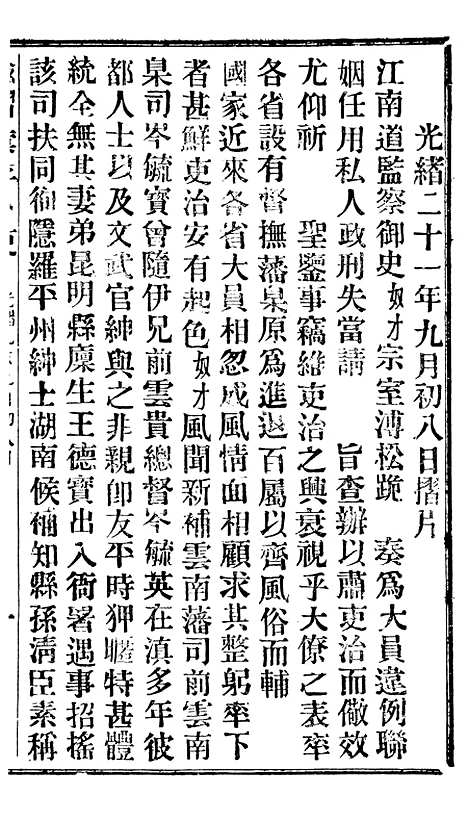 光緒二十一年九月初八日摺片
江南道監察御史奴才宗室溥松跪　奏爲大員違例聯
姻任用私人政刑失當請　旨查辦以肅吏治而儆效
尤仰祈　聖鑒事竊維吏治之興衰視乎大僚之表率
各省設有督撫藩臬原爲進退百屬以齊風俗而輔
國家近來各省大員相忽成風情面相顧求其整躬率下
者甚鮮吏治安有起色奴才風聞新補雲南藩司前雲南
臬司岑毓寶曾隨伊兄前雲貴總督岑毓英在滇多年彼
都人士以及文武官紳與之非親卽友平時狎暱特甚體
統全無其妻弟昆明縣廩生王德寶出入衙署遇事招搖
該司扶同徇隱羅平州紳士湖南候補知縣孫淸臣素稱